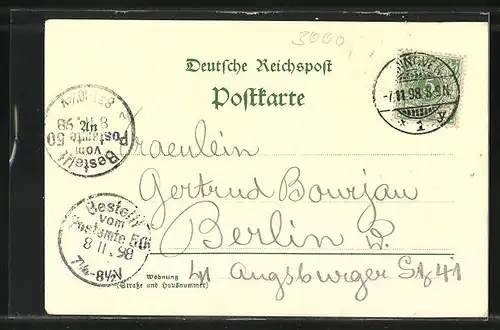 3000
Deutsche Reichspost
Postkarte
-7.11.98. 8-9N.
* 1 y
An
Bestellt
vom
Postamte 50
8 11. 98
Fraeulein
Gertrud Bourjau
Berlin W.
Bestellt
vom
Postamte 50
8 11. 98
7¼-8½N
Wohnung
(Straße und Hausnummer)
Augsburger Str 41